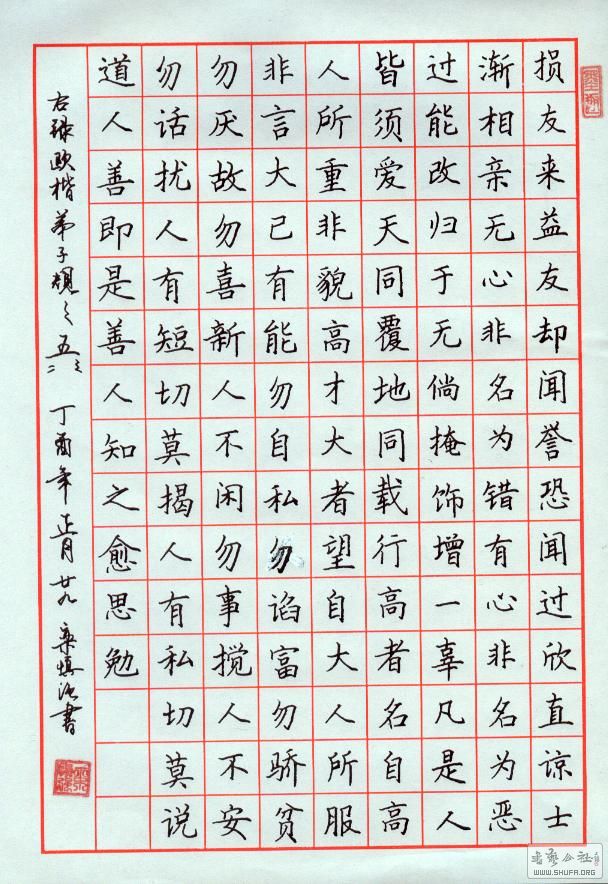 损友来益友却闻誉恐闻过欣直谅士
渐相亲无心非名为错有心非名为恶
过能改归于无倘掩饰增一辜凡是人
皆须爱天同覆地同载行高者名自高
人所重非貌高才大者望自大人所服
非言大己有能勿自私勿谄富勿骄贫
勿厌故勿喜新人不闲勿事搅人不安
勿话扰人有短切莫揭人有私切莫说
道人善即是善人知之愈思勉
右录欧楷弟子规之五 丁酉年正月廿九 栾慎 书
书艺公社
WWW.SHUFA.ORG